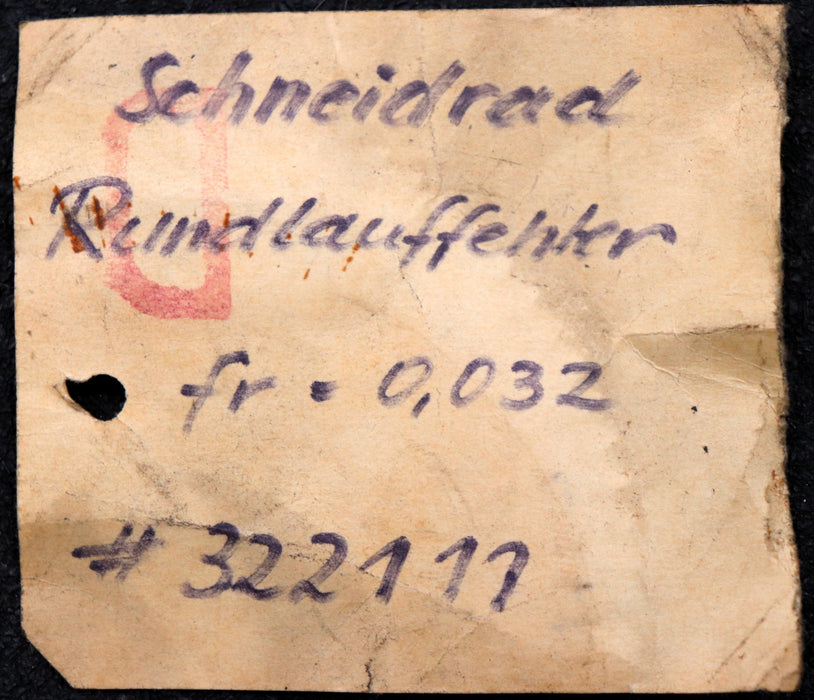 Schneidrad
Rundlauffehler
fr = 0,032
# 322111